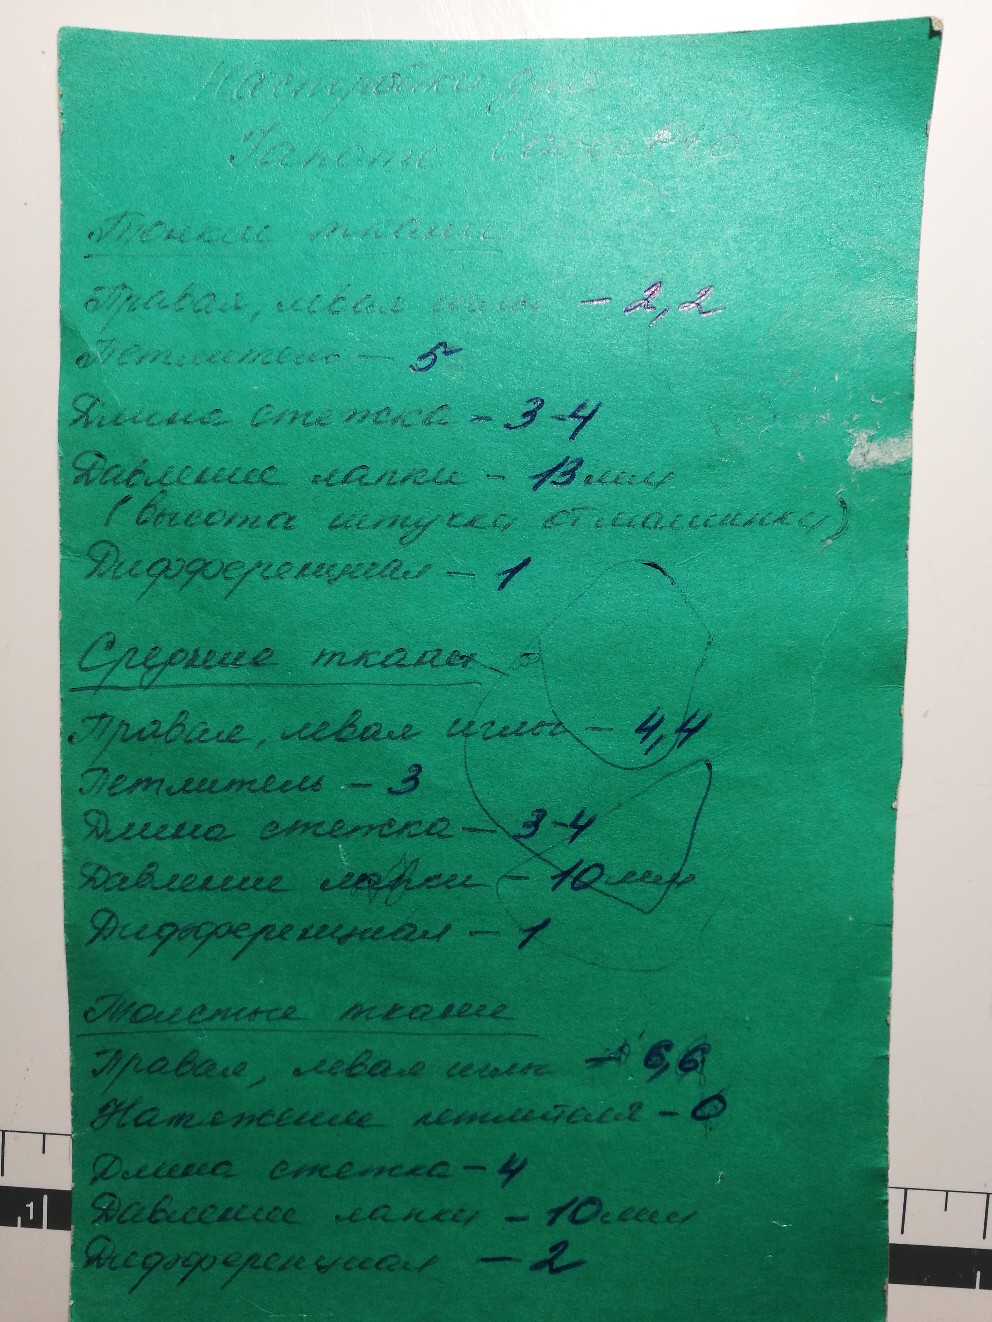 Настройки для
Janome CoverPro
Тонкие ткани
Правая, левая иглы - 2,2
Петлитель - 5
Длина стежка - 3-4
Давление лапки - 13 мм
(высота штучки от машинки)
Дифференциал - 1
Средние ткани
Правая, левая иглы - 4,4
Петлитель - 3
Длина стежка - 3-4
Давление лапки - 10 мм
Дифференциал - 1
Толстые ткани
Правая, левая иглы - 6,6
Натяжение петлителя - 0
Длина стежка - 4
Давление лапки - 10 мм
Дифференциал - 2
1